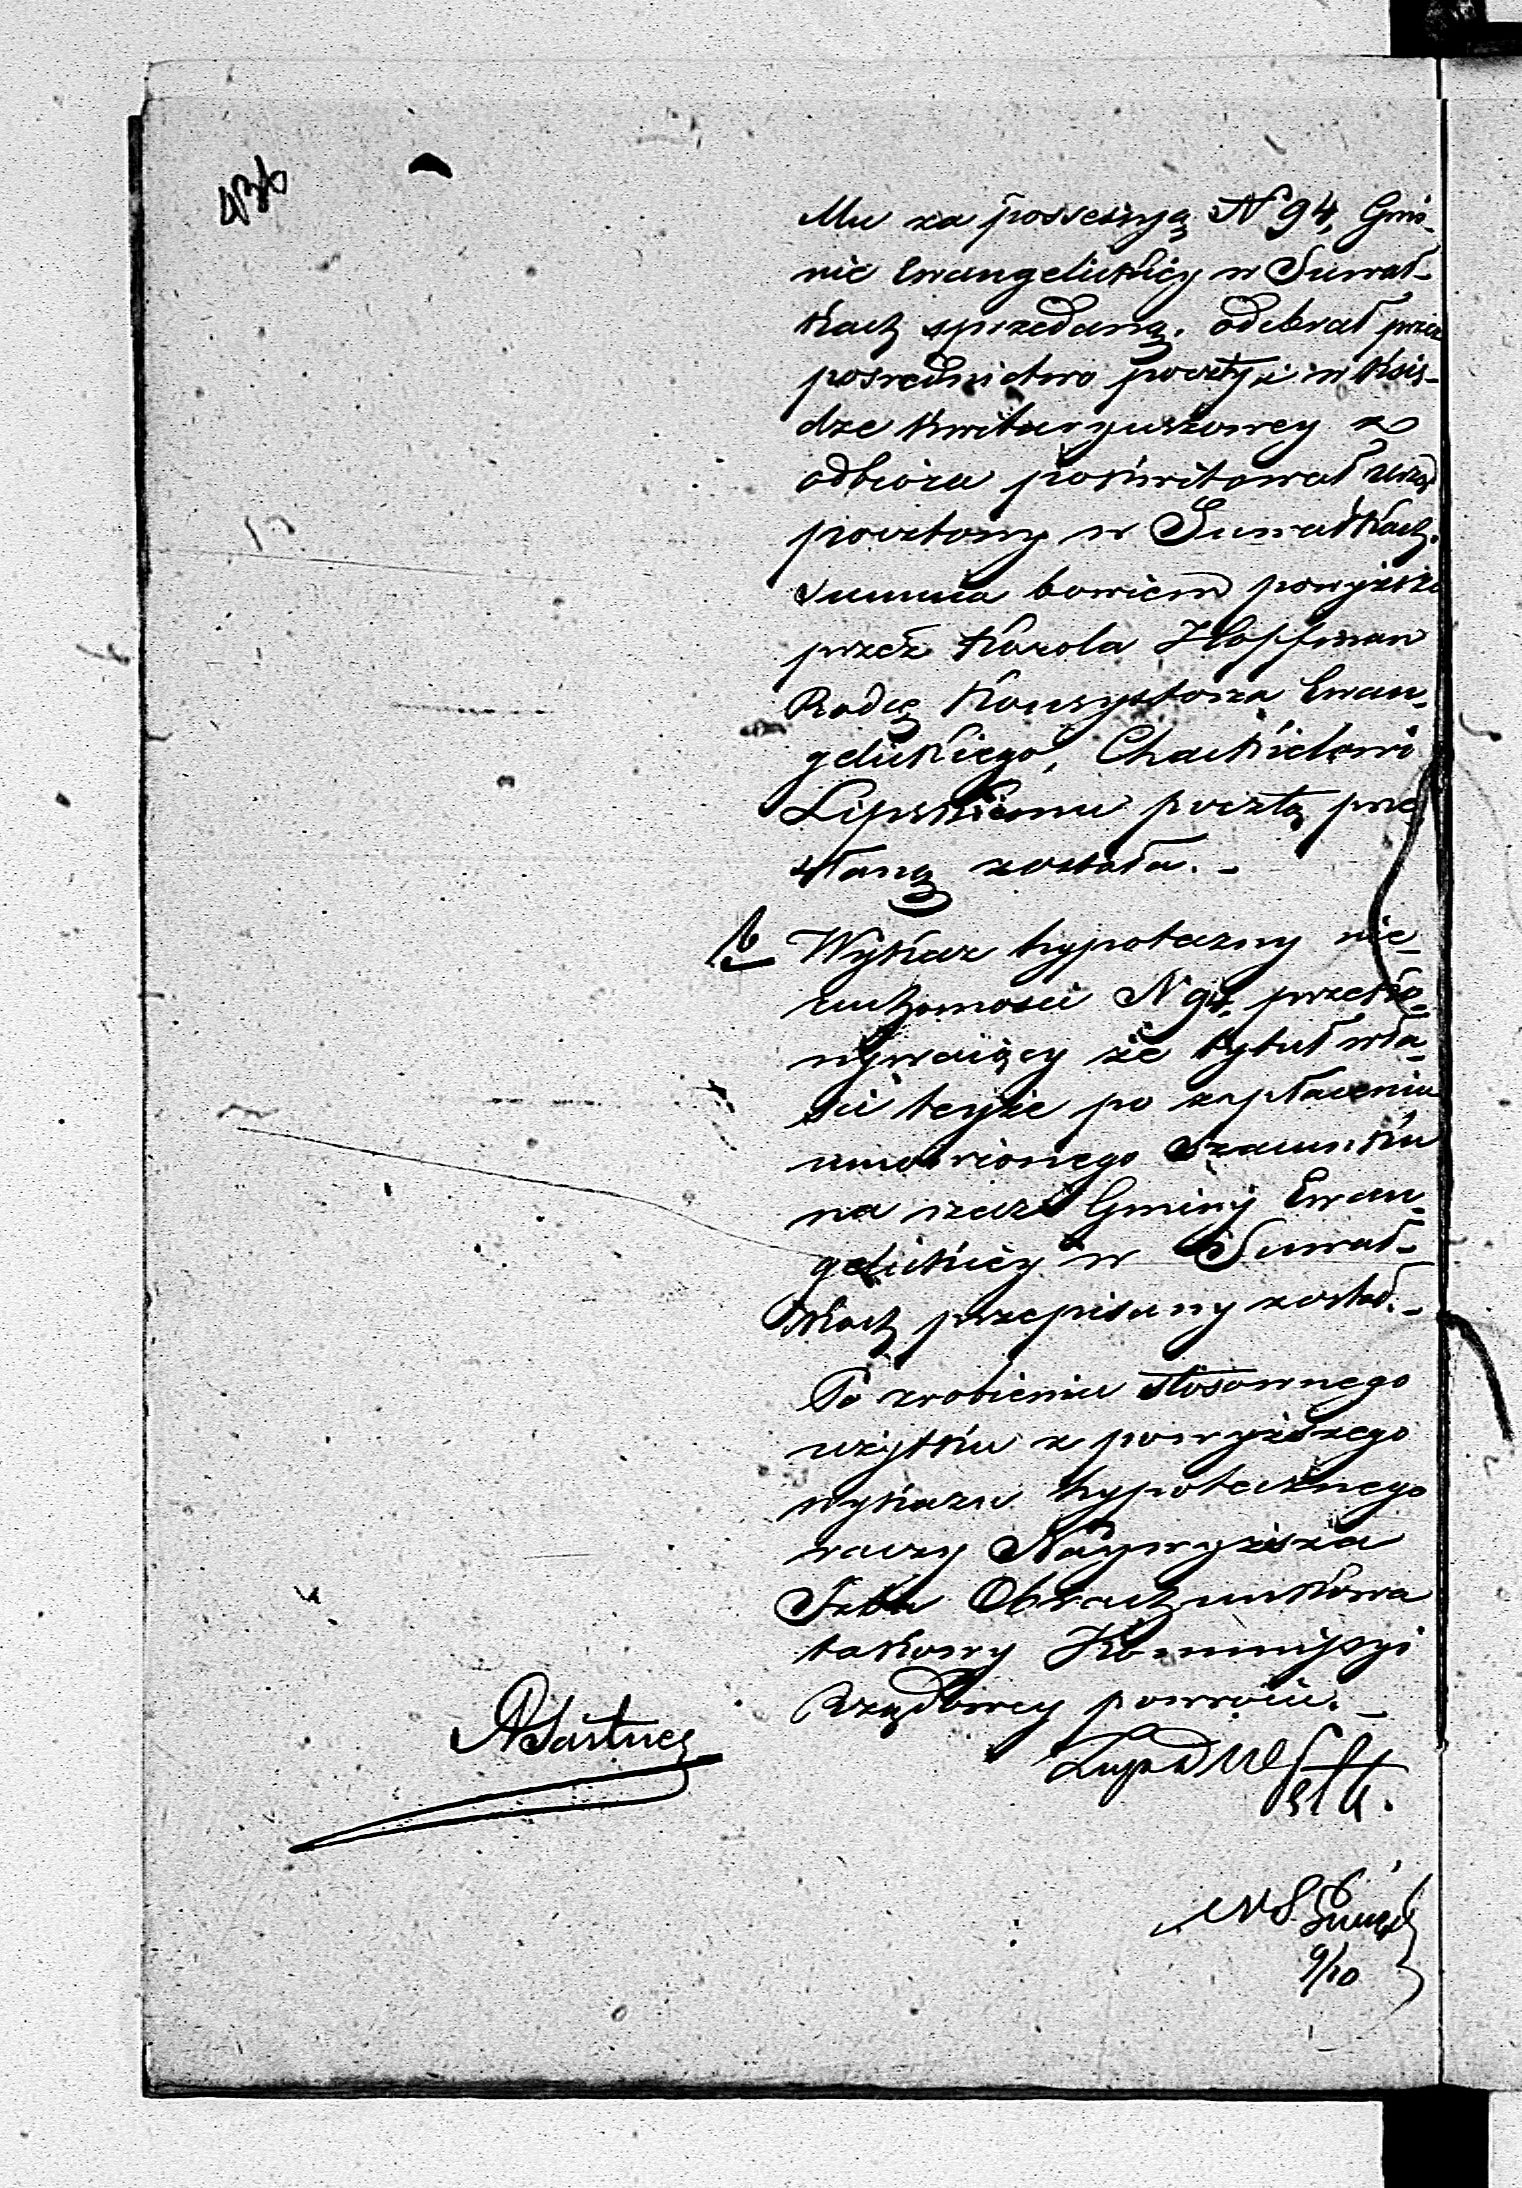 436
Mu za possessyą N 94, Gmi-
nie Ewangelickiey w Suwał-
kach sprzedaną. odebrał przez
pośrednictwo poczty i w Księ-
dze kwitaryuszowey z
odbioru pokwitował Urząd
pocztowy w Suwałkach.
Summa bowiem powyższa
przez Karola Hoffman
Radcę Konsystorza Ewan-
gelickiego, Chackielowi
Lipskiemu pocztą prze
słaną została. -
b Wykaz hypoteczny nie-
ruchomości N 94, przeko-
nywaiący że tytuł wła-
ści teyże po zapłaceniu
umówionego szacunku
na rzecz Gminy Ewan-
gelickiey w Suwał-
kach przepisany został. -
Po zrobieniu stosownego
użytku z powyższego
wykazu hypotecznego
raczy Naywyższa
Izba Obrachunkowa
takowy Kommissyi
Rządowey powrócić. -
9/10